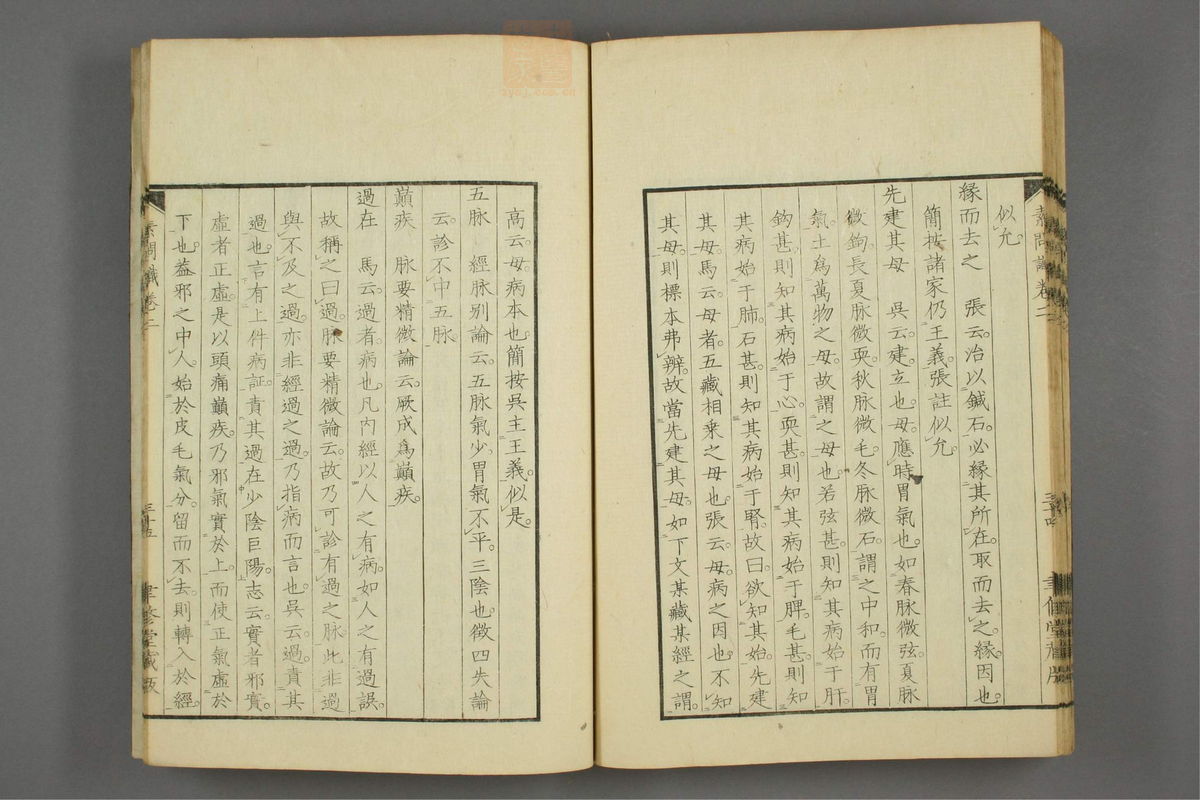 似允
緣而去之　張云治以鍼石必緣其所在取而去之緣因也
簡按諸家仍王義張註似允
先建其母　吳云建立也母應時胃氣也如春脉微弦夏脉
微鉤長夏脉微耎秋脉微毛冬脉微石謂之中和而有胃
氣土爲萬物之母故謂之母也若弦甚則知其病始于肝
鉤甚則知其病始于心耎甚則知其病始于脾毛甚則知
其病始于肺石甚則知其病始于腎故曰欲知其始先建
其母馬云母者五藏相乗之母也張云母病之因也不知
其母則標本弗辨故當先建其母如下文某藏某經之謂
高云母病本也簡按吳主王義似是
五脉　經脉別論云五脉氣少胃氣不平三陰也徵四失論
云診不中五脉
巔疾　脉要精微論云厥成爲巔疾
過在　馬云過者病也凡内經以人之有病如人之有過誤
故稱之曰過脉要精微論云故乃可診有過之脉此非過
與不及之過亦非經過之過乃指病而言也吳云過責其
過也言有上件病証責其過在少陰巨陽志云實者邪實
虛者正虛是以頭痛巔疾乃邪氣實於上而使正氣虛於
下也葢邪之中人始於皮毛氣分留而不去則轉入於經
素問識卷二
三十五
聿修堂藏版